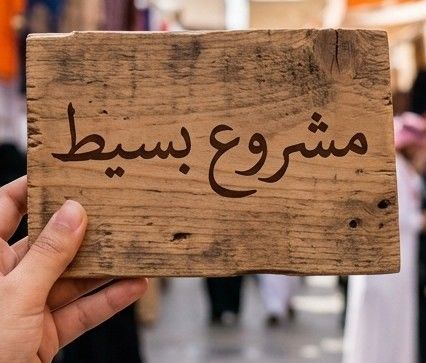 مشروع بسيط